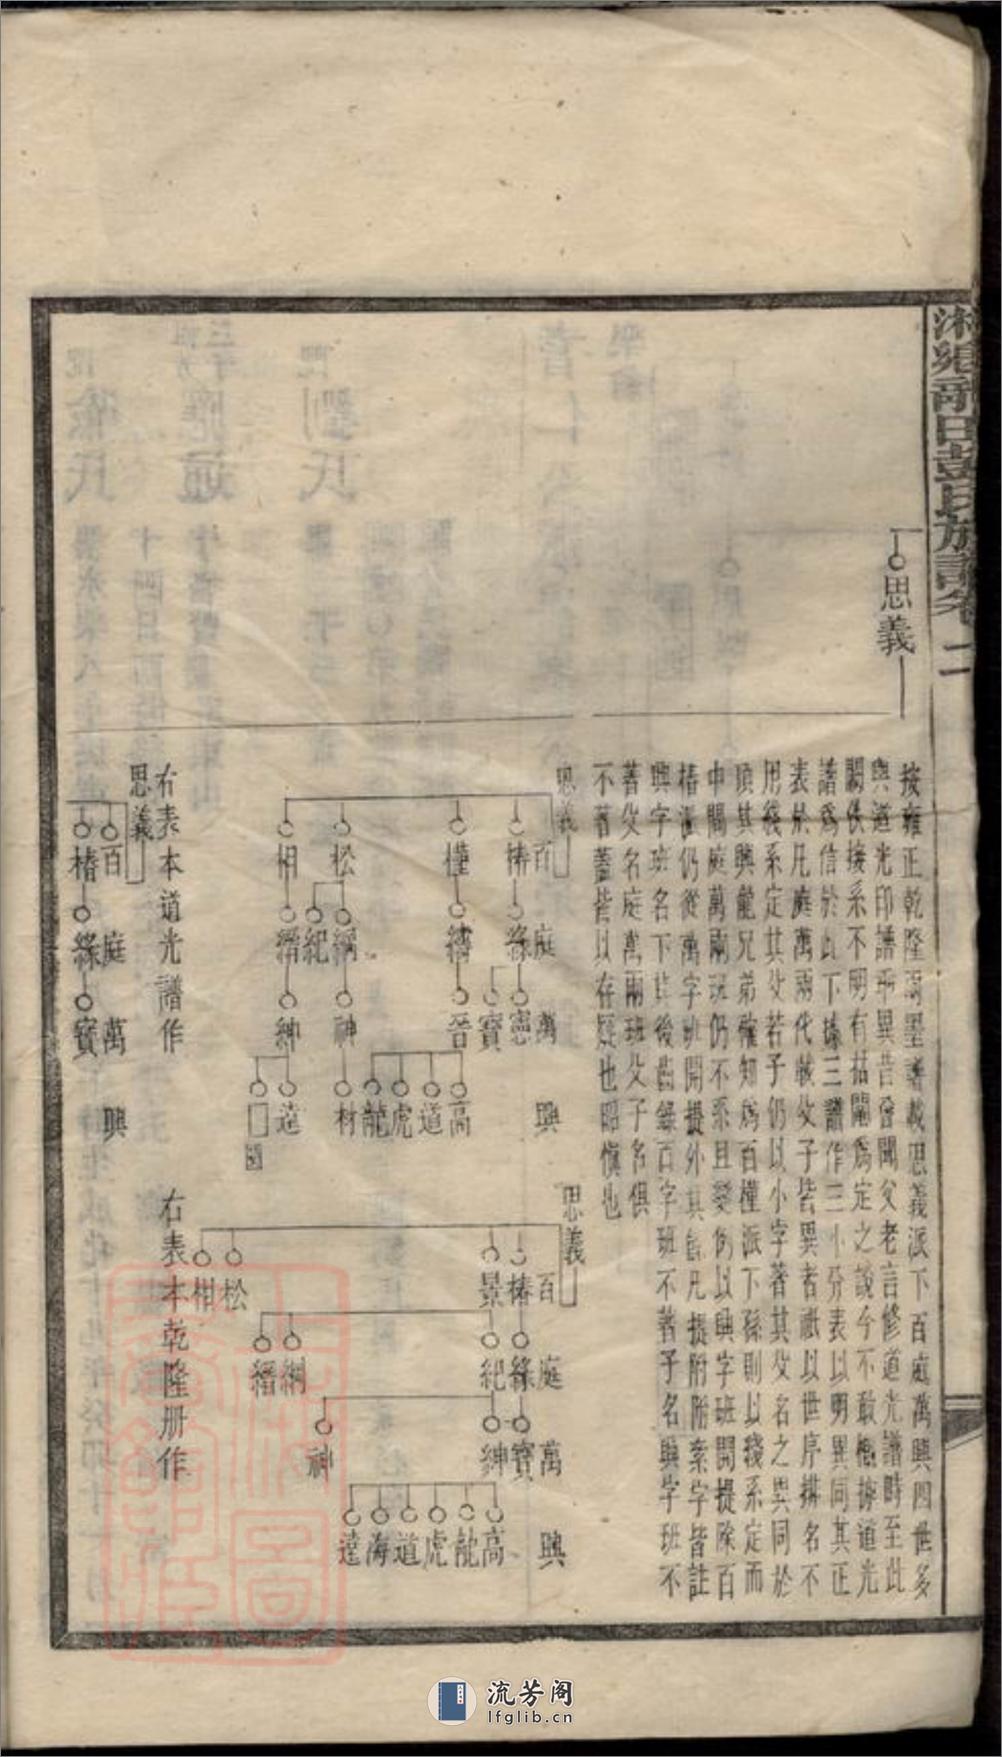 思義
按雍正乾隆兩墨譜載思義派下百庭萬興四世多
與道光印譜乖異昔曾聞父老言修道光譜時至此
闕佚接系不明有拈鬮爲定之說今不敢概據道光
譜爲信於此下據三譜作三小分表以明異同其正
表於凡庭萬兩代載父子皆異者祇以世序排名不
用綫系定其父若子仍以小字著其父名之異同於
頂其興龍兄弟確知爲百槿派下孫則以綫系定而
中間庭萬兩班仍不系且變例以興字班開提除百
椿派仍從萬字班開提外其餘凡提附附系字皆註
興字班名下其後齒錄百字班不著子名興字班不
著父名庭萬兩班父子名俱
不著蓋皆以存疑也昭愼也
思義
百 椿 槿 松 相
庭 綠 繡 綱 紀 縉
萬 憲 寶 晉 神 紳
興 高 道 虎 龍 材 達 □
右表本道光譜作
思義
百 椿 景 松 柑
庭 綠 紀 綱 縉
萬 寶 紳 神
興 高 龍 虎 道 海 達
右表本乾隆册作
思義
百 椿
庭 綠
萬 寶
興
流芳阁
lfglib.cn